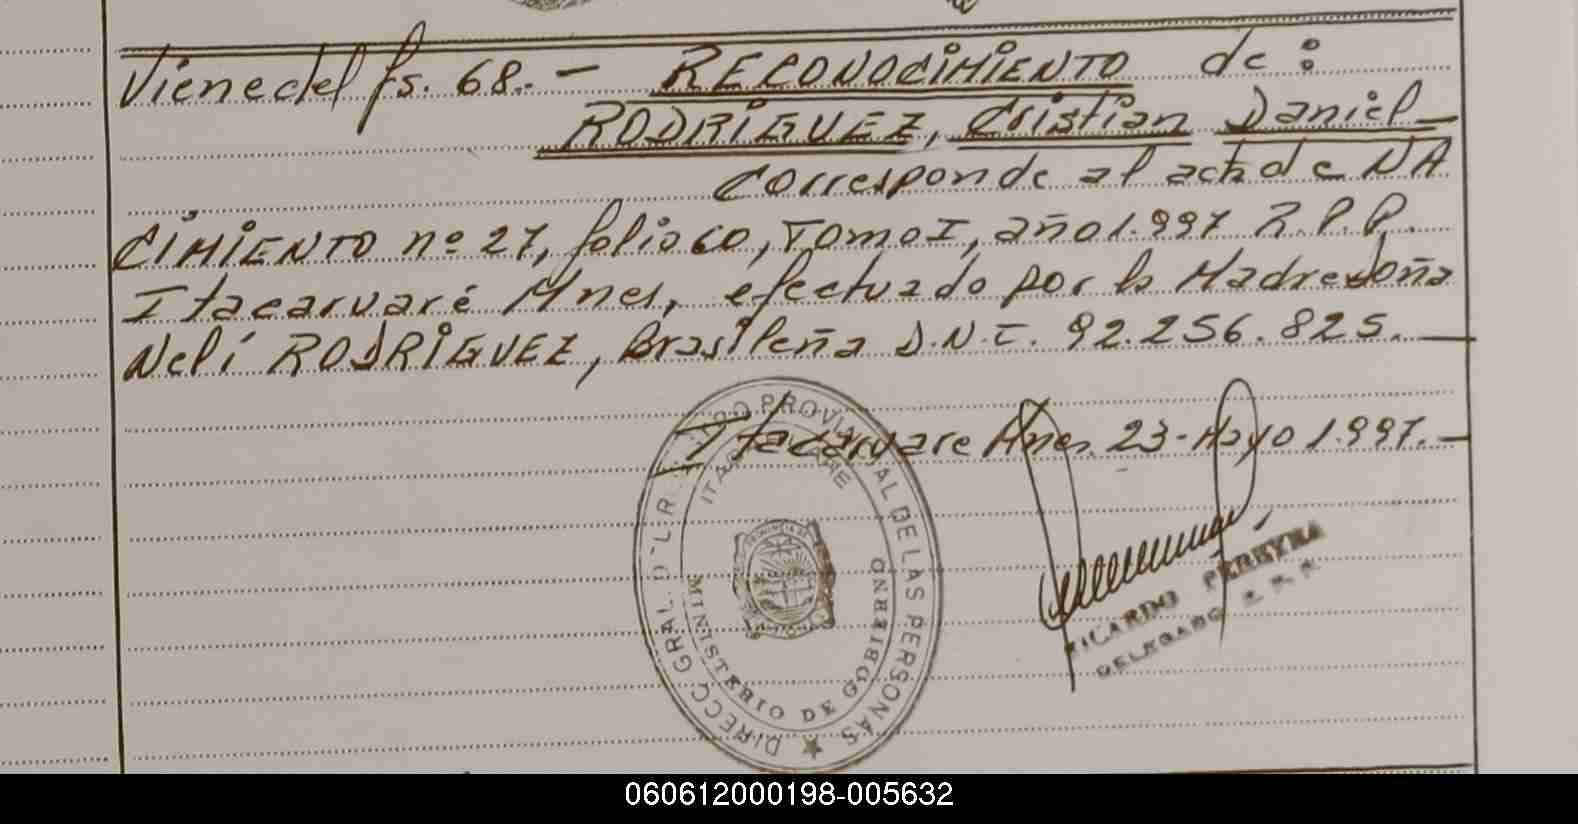 Viene del fs. 68.- RECONOCIMIENTO de:
RODRIGUEZ, Cristian Daniel
Corresponde al acta de NA
CIMIENTO nº 27, folio 60, Tomo I, año 1.997 R.P.P.
Itacaruaré Mnes, efectuado por la Madre doña
Neli RODRIGUEZ, Brasileña D.N.I. 92.256.825.
Itacaruare Mnes. 23-Mayo 1.997.-
PROVINCIAL DE LAS PERSONAS
DIRECC GRAL. DEL R
MINISTERIO DE GOBIERNO
RICARDO PEREYRA
DELEGADO
060612000198-005632